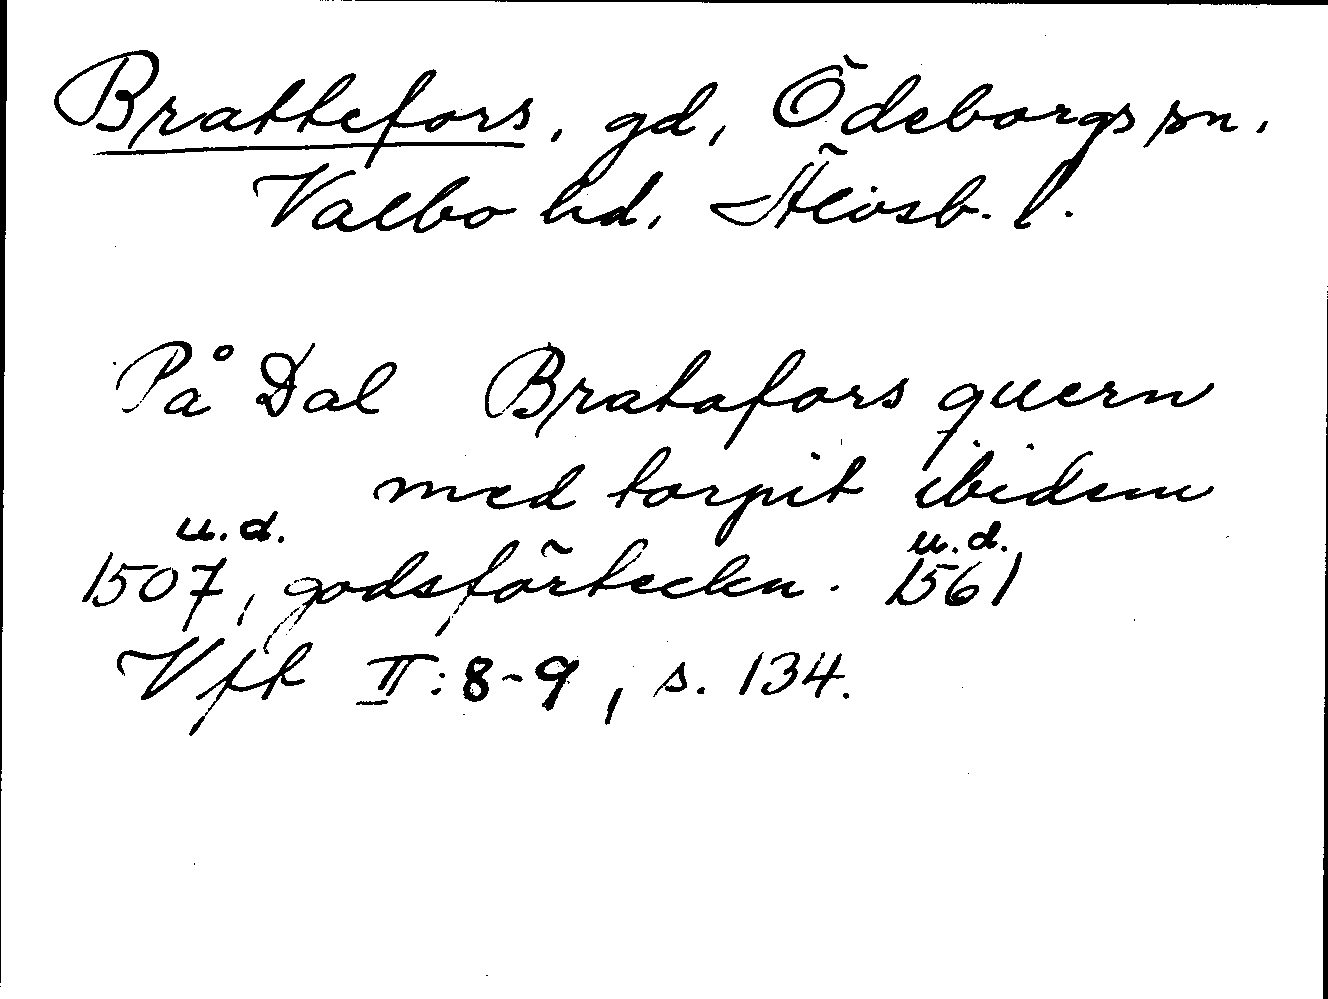 Brattefors, gd, Ödeborgs sn.
Valbo hd. Älvsb. l.
På Dal Bratafors quern
med torpit ibidem
u.d. u.d.
1507, godsförteckn. 1561
Vfk II:8-9, s. 134.